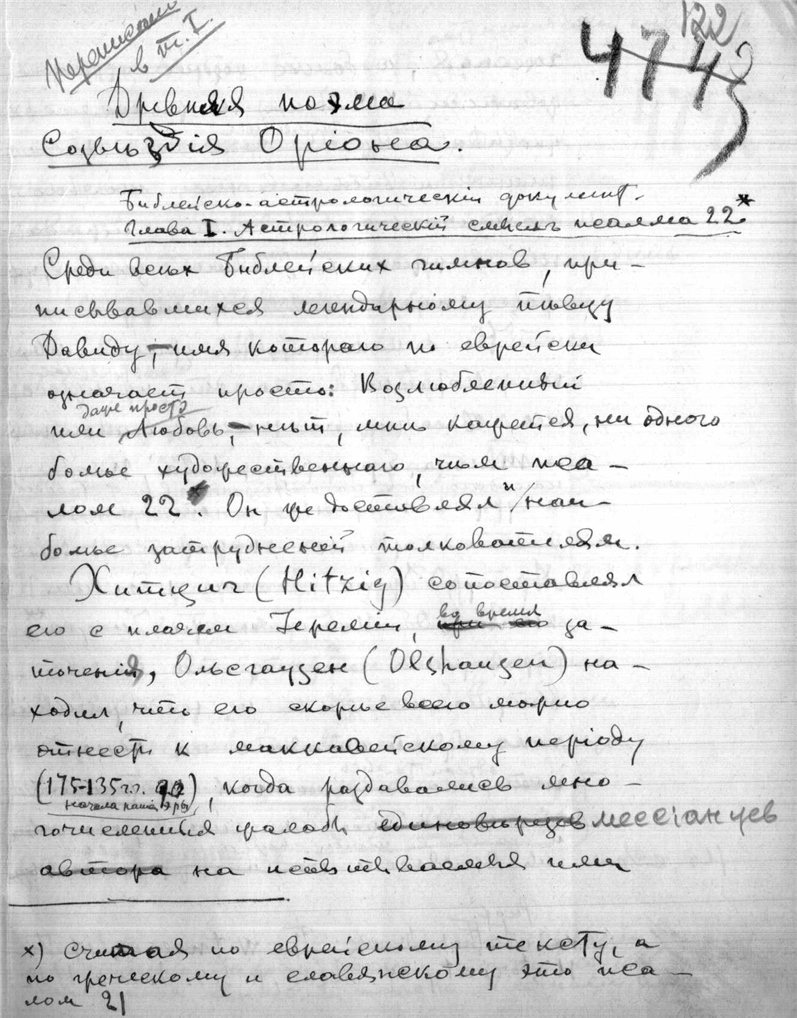 Переписано
в т. I.
122
4743
Древняя поэма
Созвѣздія Оріона.
Библейско-астрологическій документ.
Глава I. Астрологическій смысл псалма 22*
Среди всѣх Библейских гимнов, при-
писывавшихся легендарному пѣвцу
Давиду,—имя котораго по еврейски
означает просто: Возлюбленный
даже просто
или Любовь,—нѣт, мнѣ кажется, ни одного
болѣе художественнаго, чѣм пса-
лом 22*. Он же доставлял и наи-
болѣе затрудненій толкователям.
Хитциг (Hitzig) сопоставлял
его с плачем Іереміи, во время за-
точенія, Ольсгаузен (Olshausen) на-
ходил, что его скорѣе всего можно
отнести к маккавейскому періоду
(175-135 г.г. до), когда раздавались мно-
начала нашей эры
гочисленныя жалобы единовѣрцев мессіанцев
автора на испытываемыя ими
x) Считая по еврейскому тексту, а
по греческому и славянскому это пса-
лом 21